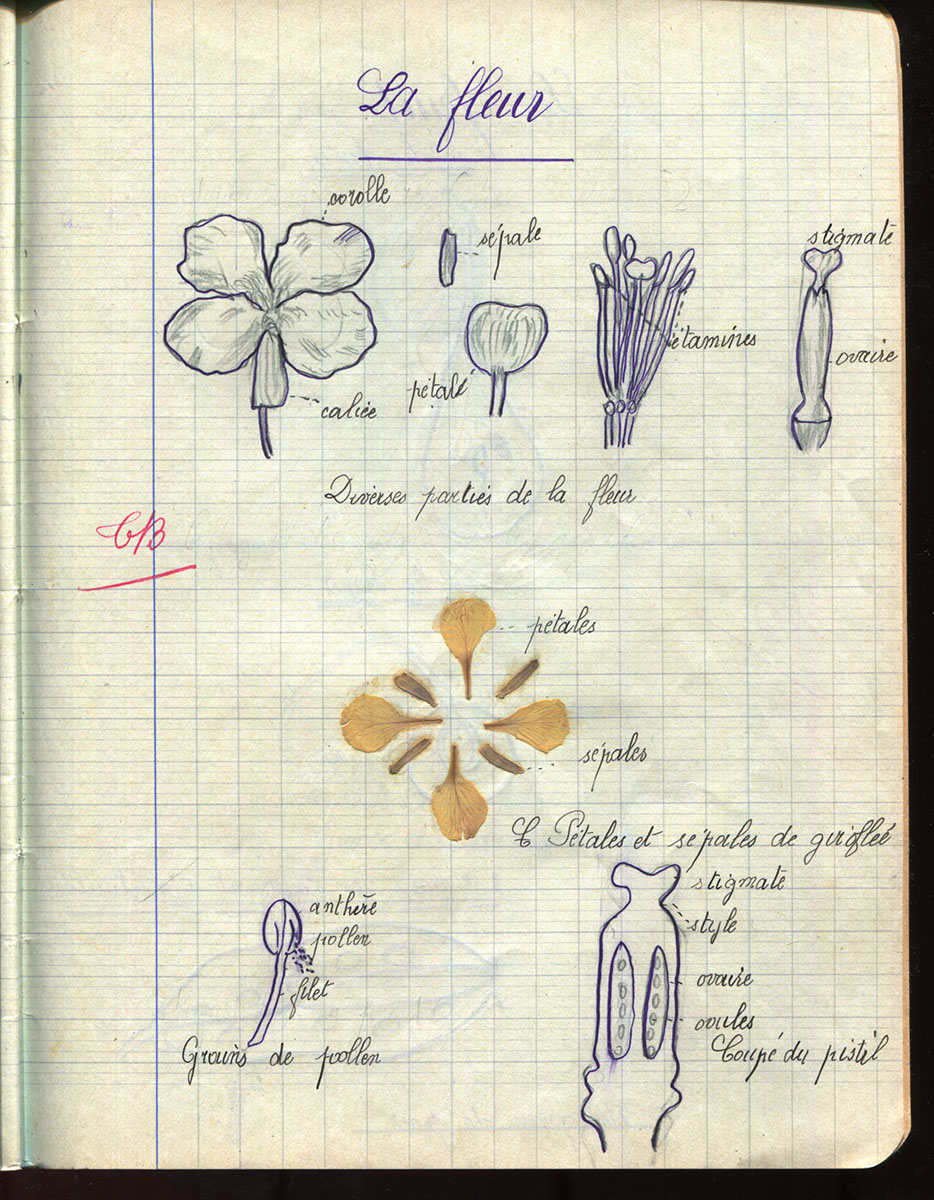 La fleur
corolle
sépale
stigmate
étamines
ovaire
pétale
calice
Diverses parties de la fleur
TB
pétales
sépales
Pétales et sépales de giroflée
stigmate
anthère
style
pollen
ovaire
filet
ovules
Coupe du pistil
Grains de pollen